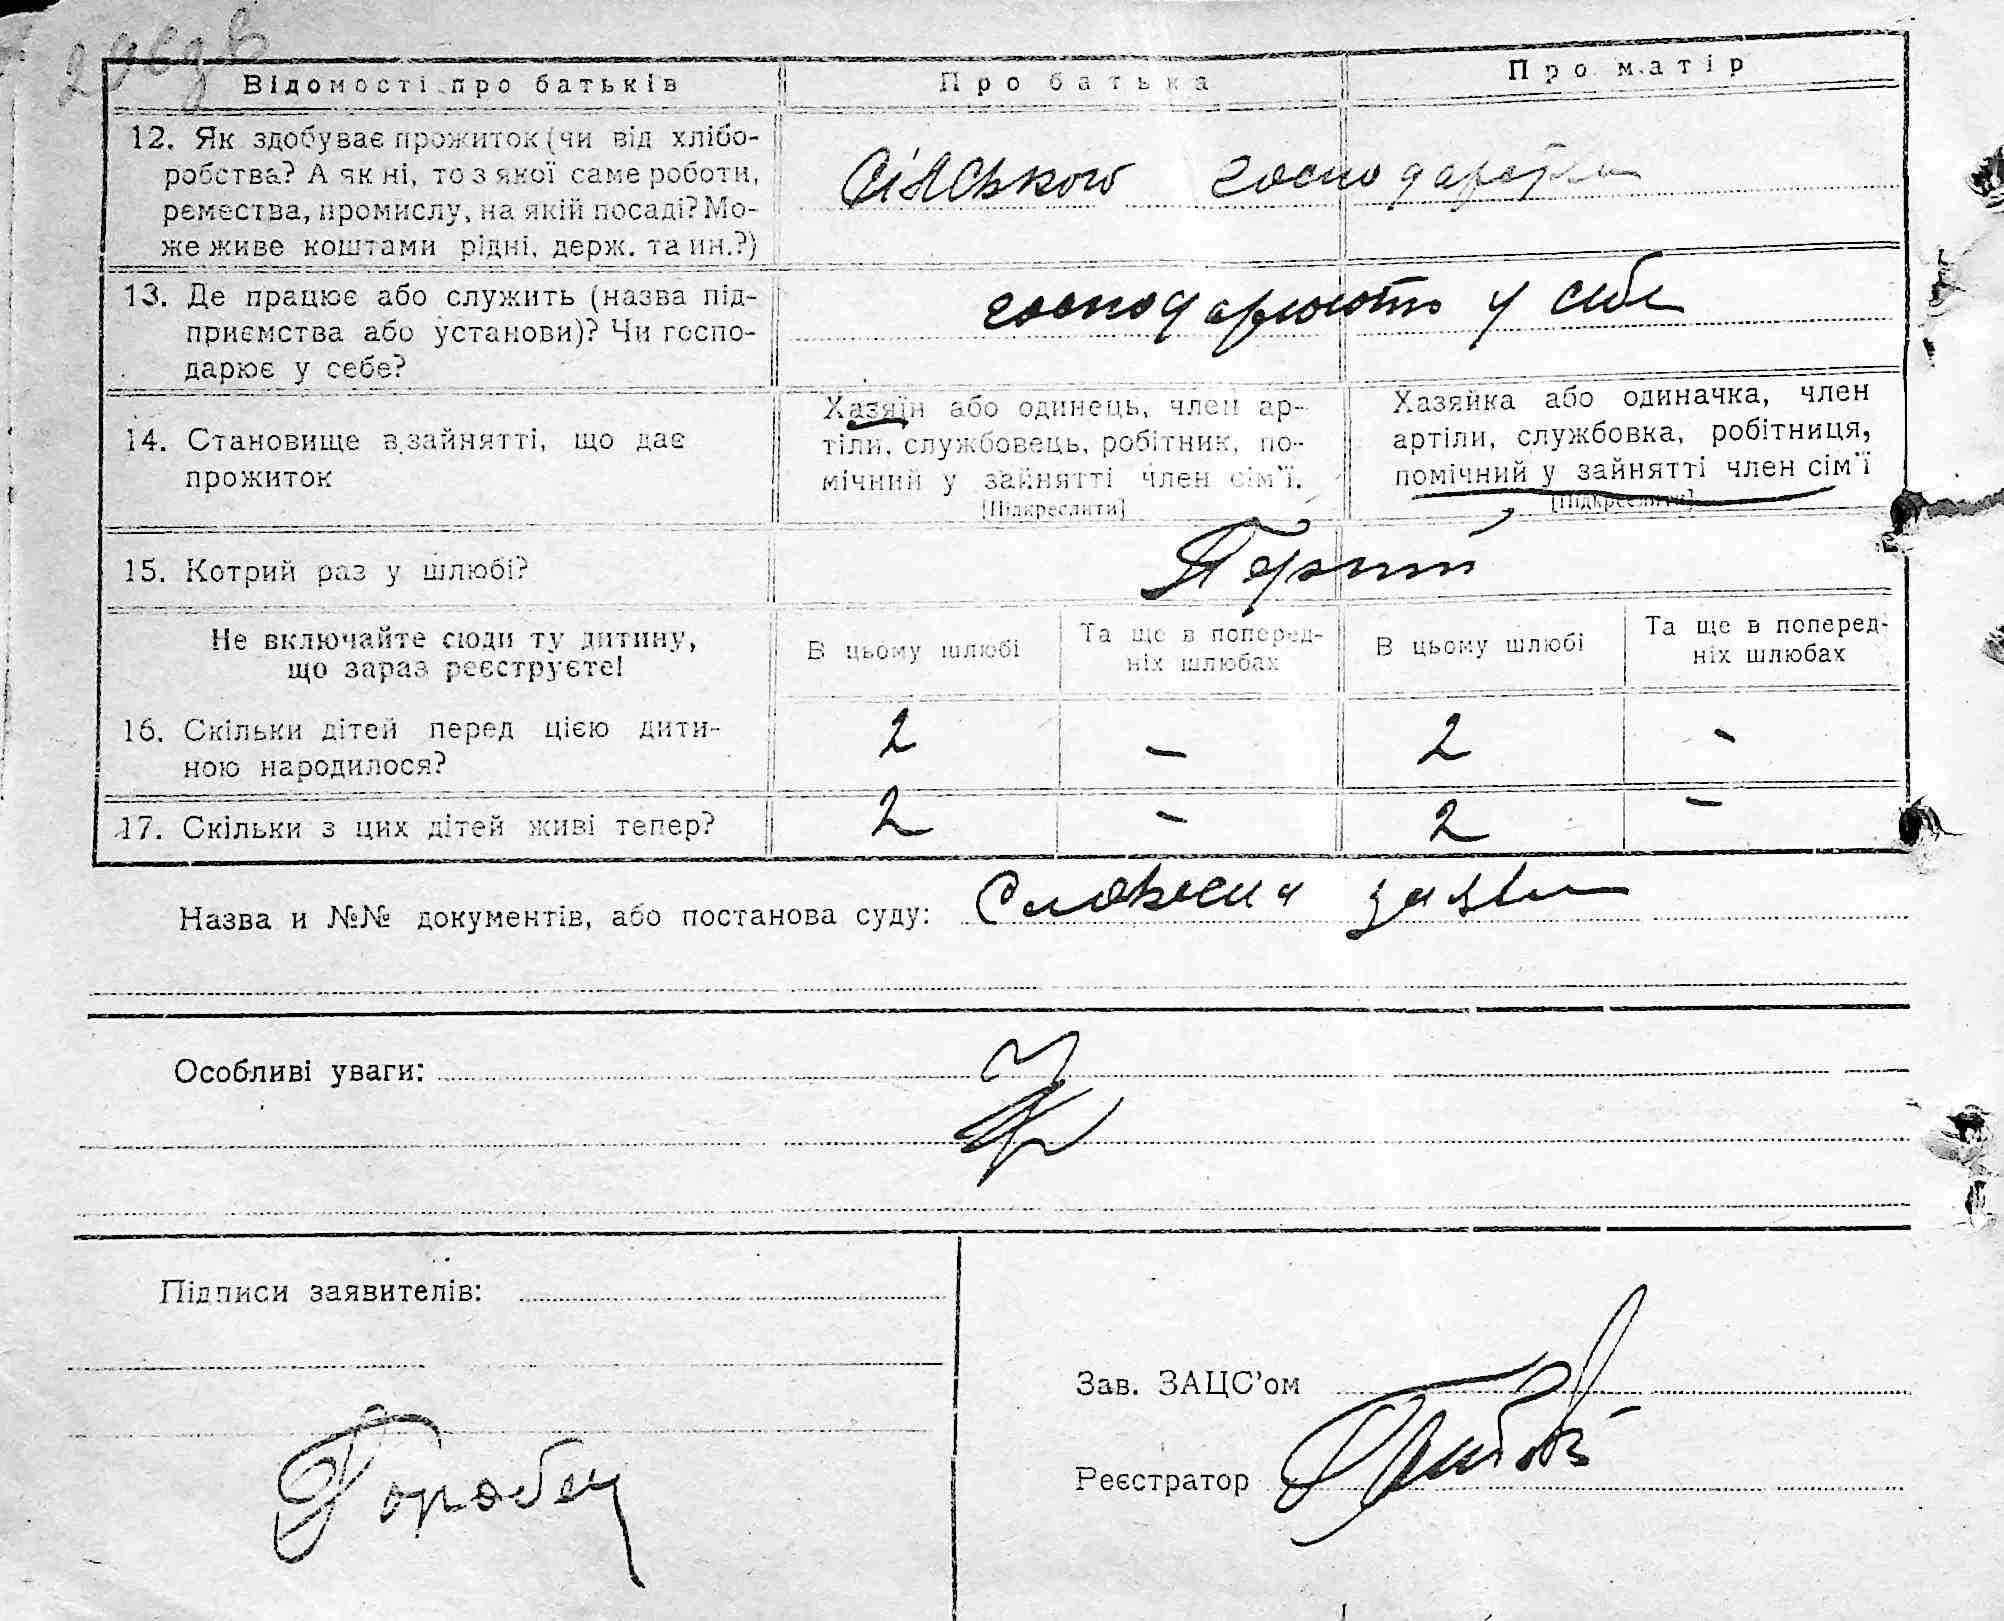 Відомості про батьків Про батька Про матір
12. Як здобуває прожиток (чи від хлібо-
робства? А як ні, то з якої саме роботи,
ремества, промислу, на якій посаді? Мо-
же живе коштами рідні, держ. та ин.?)
Сільського господарства
13. Де працює або служить (назва під-
приємства або установи)? Чи госпо-
дарює у себе?
господарюють у себе
14. Становище в зайнятті, що дає
прожиток
Хазяїн або одинець, член ар-
тіли, службовець, робітник, по-
мічний у зайнятті член сім'ї.
[Підкреслити]
Хазяйка або одиначка, член
артіли, службовка, робітниця,
помічний у зайнятті член сім'ї
[Підкреслити]
15. Котрий раз у шлюбі?
Перший
Не включайте сюди ту дитину,
що зараз реєструєте!
В цьому шлюбі
Та ще в поперед-
ніх шлюбах
В цьому шлюбі
Та ще в поперед-
ніх шлюбах
16. Скільки дітей перед цією дити-
ною народилося?
2 – 2 –
17. Скільки з цих дітей живі тепер? 2 – 2 –
Назва и №№ документів, або постанова суду: Словесна заява
Особливі уваги:
Підписи заявителів:
Горобец
Зав. ЗАЦС'ом
Реєстратор